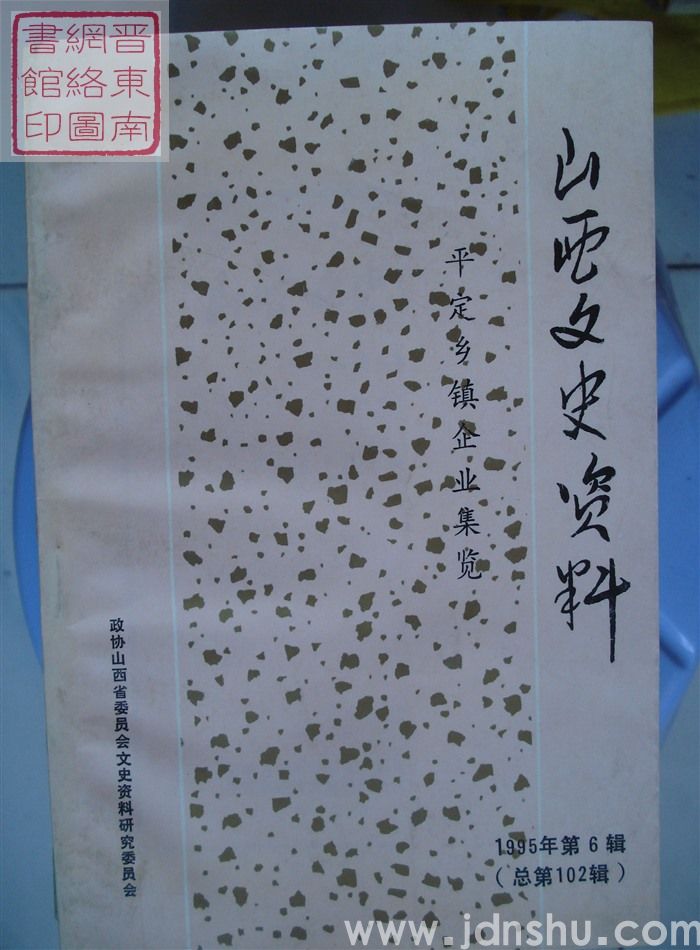 晋東南
網絡圖
書館印
山西文史资料
平定乡镇企业集览
政协山西省委员会文史资料研究委员会
1995年第6辑
（总第102辑）
www.jdnshu.com